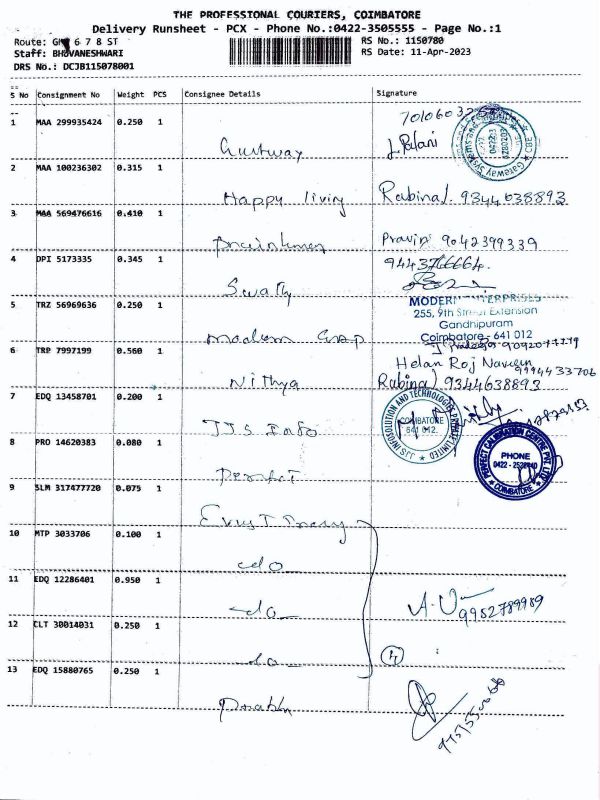 THE PROFESSIONAL COURIERS, COIMBATORE
Delivery Runsheet - PCX - Phone No.:0422-3505555 - Page No.:1
Route: 6 7 8 ST
RS No.: 1150780
Staff: BHUVANESHWARI
RS Date: 11-Apr-2023
DRS No.: DCJB115078001
S No Consignment No Weight PCS Consignee Details Signature
1 MAA 299935424 0.250 1
2 MAA 100236302 0.315 1
Happy living Rabina 9344638893
3 MAA 569476616 0.410 1
Pravin 9042399339
4 DPI 5173335 0.345 1
Swathy
MODERN ENTERPRISES
255, 9th Street Extension
Gandhipuram
Coimbatore- 641 012
5 TRZ 56969636 0.250 1
6 TRP 7997199 0.560 1
Helan Roj Naveen
9994433706
Nithya Rabina 9344638893
7 EDQ 13458701 0.200 1
JJS Info
JJS INFOSOLUTION AND TECHNOLOGIES PRIVATE LIMITED
COIMBATORE
641 012.
8 PRO 14620383 0.080 1
Perfect
PERFECT CALIBRATION CENTRE PVT LTD
PHONE
COIMBATORE
9 SLM 317477720 0.075 1
10 MTP 3033706 0.100 1
do
11 EDQ 12286401 0.950 1
do
9952789989
12 CLT 30014031 0.250 1
do
4
13 EDQ 15880765 0.250 1
Prabhu